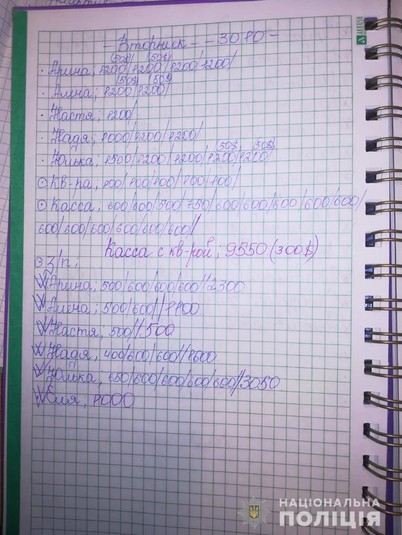 Вторник - 30
50$ 50$
· Арина, 1200/1200/1200/1200/
50$ 50$
· Алина, 1200/1200/
· Настя, 1200/
· Надя, 1000/1200/1200/
50$ 50$
· Юлька, 1500/1200/1200/1200/1200/
⊙ Кв-ра,
⊙ Касса, 600/600/500/750/600/600/500/600/600/
600/600/600/600/600/600/
Касса с кв-рой, 9550 (300$)
З/п,
Арина, 500/600/600/600//2300
Алина, 500/600//1100
Настя, 500//500
Надя, 400/600/600//1600
Юлька, 650/600/600/600/600//3050
1000
НАЦІОНАЛЬНА
ПОЛІЦІЯ